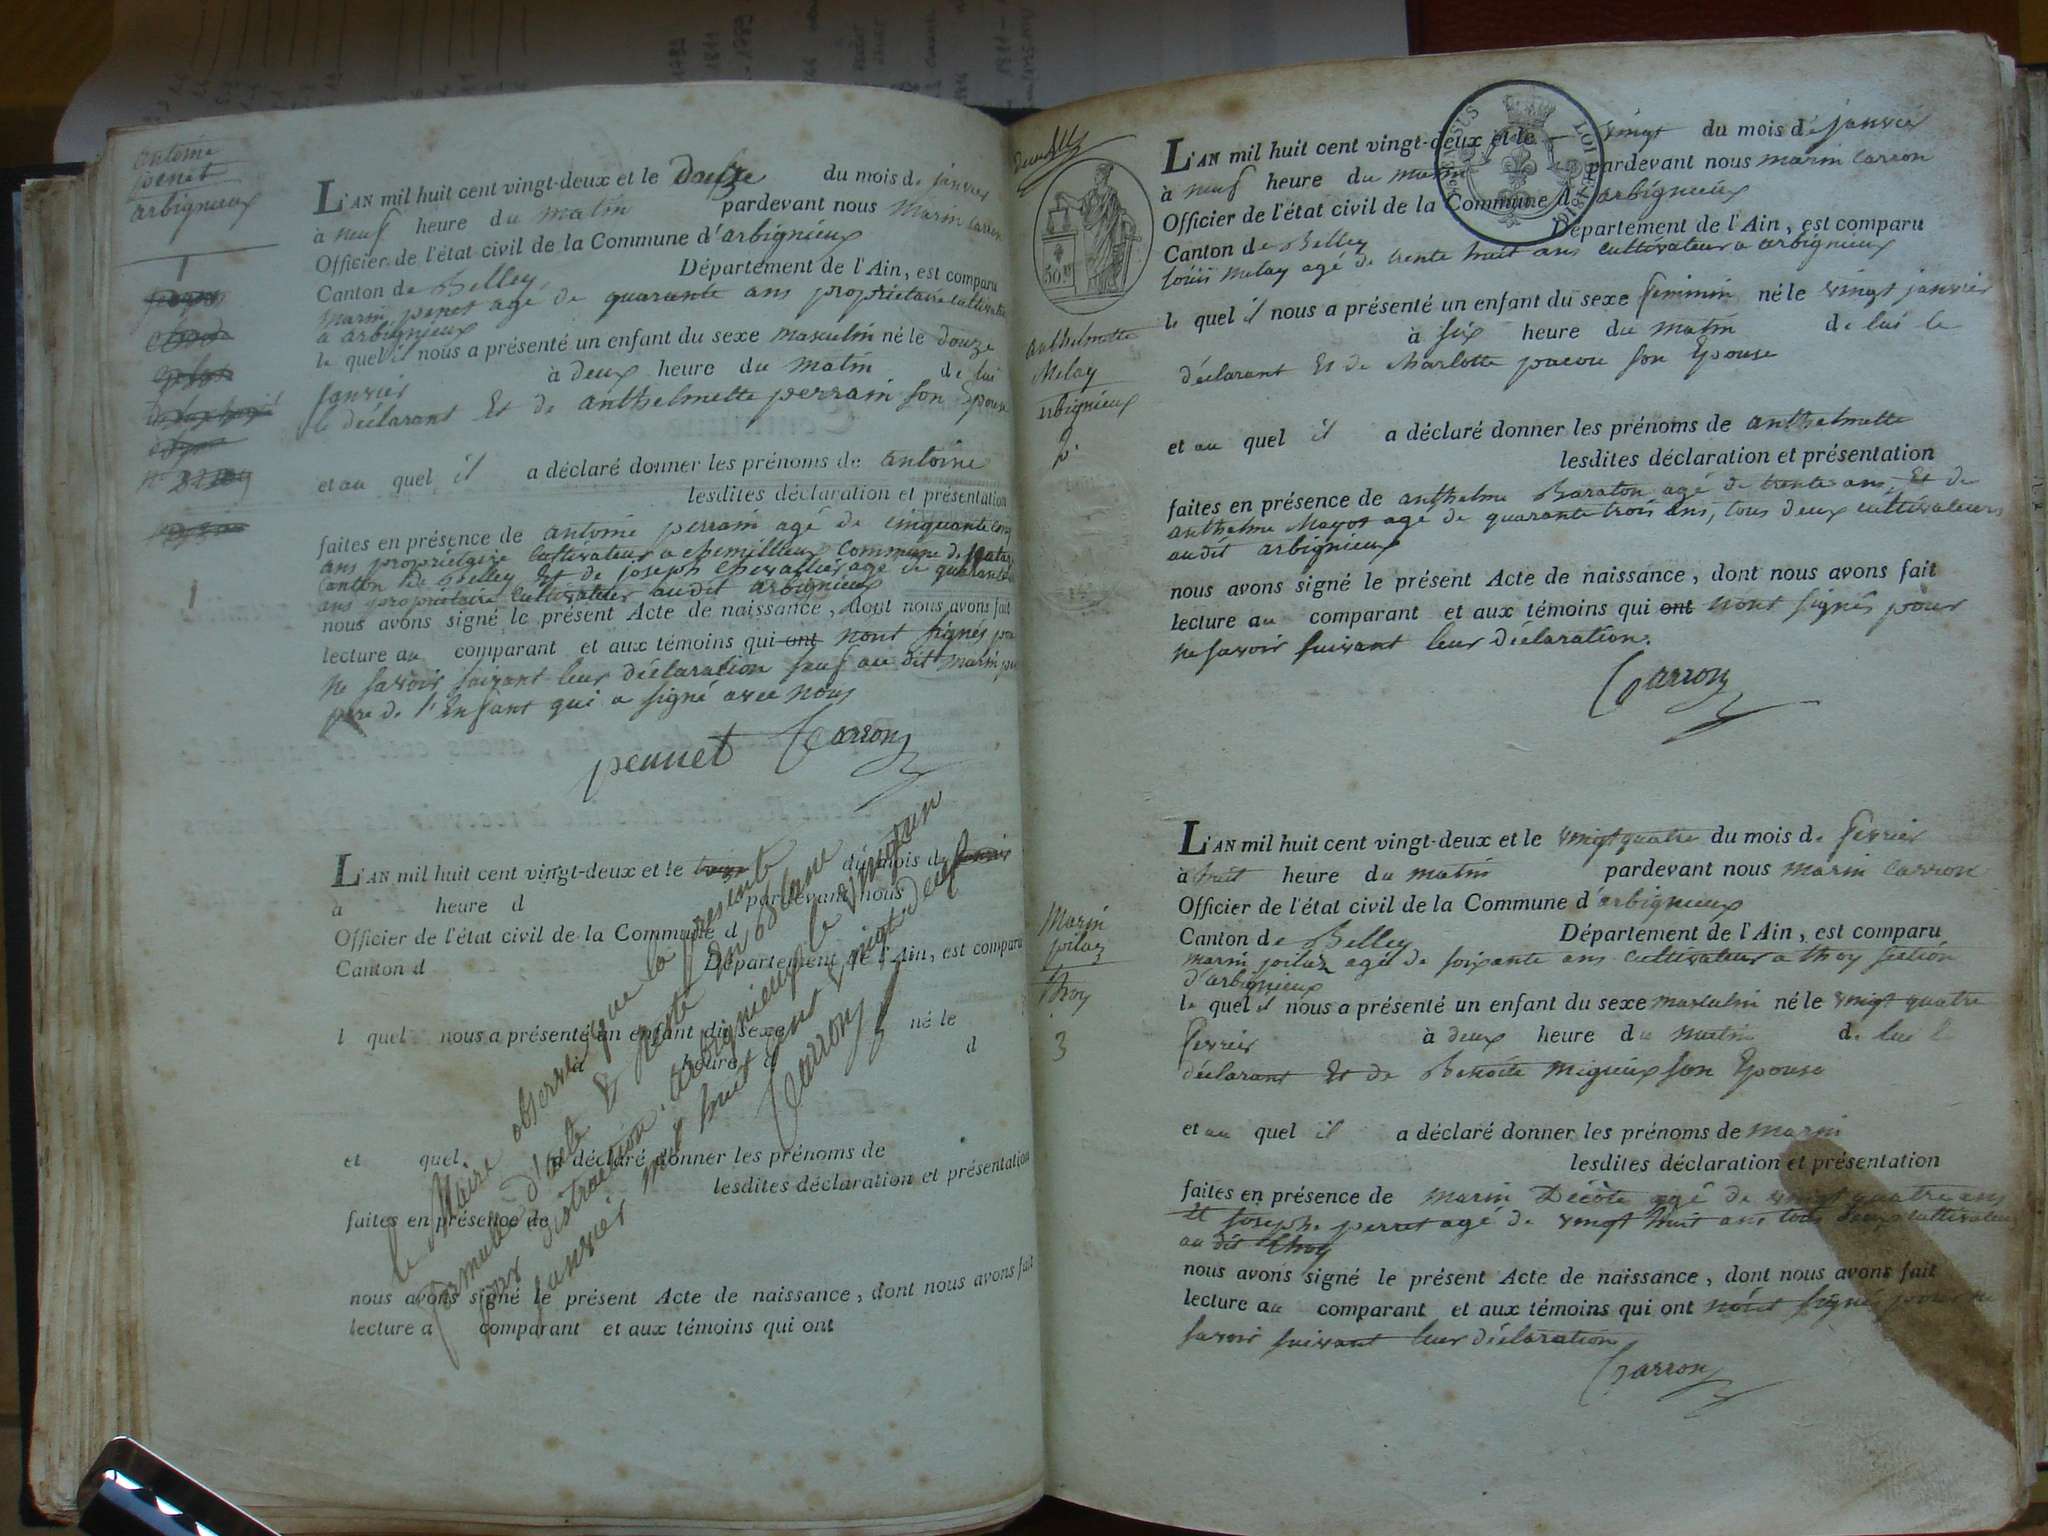 antoine
penet
arbignieux
1
L'AN mil huit cent vingt-deux et le douze du mois de janvier
à neuf heure du matin pardevant nous Marin Carron
Officier de l'état civil de la Commune d'arbignieux
Canton de Belley, Département de l'Ain, est comparu
Marin penet agé de quarante ans propriétaire cultivateur
a arbignieux
le quel il nous a présenté un enfant du sexe masculin né le douze
janvier à deux heure du matin de lui
le déclarant Et de anthelmette perrain son Epouse
et au quel il a déclaré donner les prénoms de antoine
lesdites déclaration et présentation
faites en présence de antoine perrain agé de cinquante cinq
ans propriétaire cultivateur a chemillieux Commune de
Canton de Belley Et de joseph chevallier agé de quarante
ans propriétaire Cultivateur audit arbignieux
nous avons signé le présent Acte de naissance, dont nous avons fait
lecture au comparant et aux témoins qui ont nont signés pour
ne savoir suivant leur déclaration sauf au dit Marin penet
père de l'Enfant qui a signé avec nous
pennet Carron
1
L'AN mil huit cent vingt-deux et le du mois de janvier
à heure d pardevant nous
Officier de l'état civil de la Commune d
Canton d Département de l'Ain, est comparu
l quel nous a présenté un enfant du sexe né le
à heure d d
et quel a déclaré donner les prénoms de
lesdites déclaration et présentation
faites en présence de
nous avons signé le présent Acte de naissance, dont nous avons fait
lecture a comparant et aux témoins qui ont
le Maire observe que la presente
formule d'acte a resté en blanc
par distraction. arbignieux le vingt un
janvier mil huit cent vingt deux
Carron
50 c
anthelmette
Melay
arbignieux
2.
L'AN mil huit cent vingt-deux et le vingt du mois de janvier
à neuf heure du matin pardevant nous marin carron
Officier de l'état civil de la Commune d'arbignieux
Canton de Belley Département de l'Ain, est comparu
louis Melay agé de trente huit ans cultivateur a arbignieux
le quel il nous a présenté un enfant du sexe feminin né le vingt janvier
à six heure du matin de lui le
déclarant Et de charlotte pacou son Epouse
et au quel il a déclaré donner les prénoms de anthelmette
lesdites déclaration et présentation
faites en présence de anthelme Baraton agé de trente ans, Et de
anthelme Mayot agé de quarante trois ans, tous deux cultivateurs
audit arbignieux
nous avons signé le présent Acte de naissance, dont nous avons fait
lecture au comparant et aux témoins qui ont nont signés pour
ne savoir suivant leur déclaration.
Carron
Marin
joilaz
thoy
3
L'AN mil huit cent vingt-deux et le vingt quatre du mois de fevrier
à huit heure du matin pardevant nous marin carron
Officier de l'état civil de la Commune d'arbignieux
Canton de Belley Département de l'Ain, est comparu
marin joilaz agé de soixante ans cultivateur a thoy section
d'arbignieux
le quel il nous a présenté un enfant du sexe masculin né le vingt quatre
fevrier à deux heure du matin de lui le
déclarant Et de Benoite migieux son Epouse
et au quel il a déclaré donner les prénoms de marin
lesdites déclaration et présentation
faites en présence de marin Décôte agé de vingt quatre ans
et joseph perret agé de vingt huit ans tous deux cultivateurs
au dit thoy
nous avons signé le présent Acte de naissance, dont nous avons fait
lecture au comparant et aux témoins qui ont nont signés pour ne
savoir suivant leur déclaration
Carron